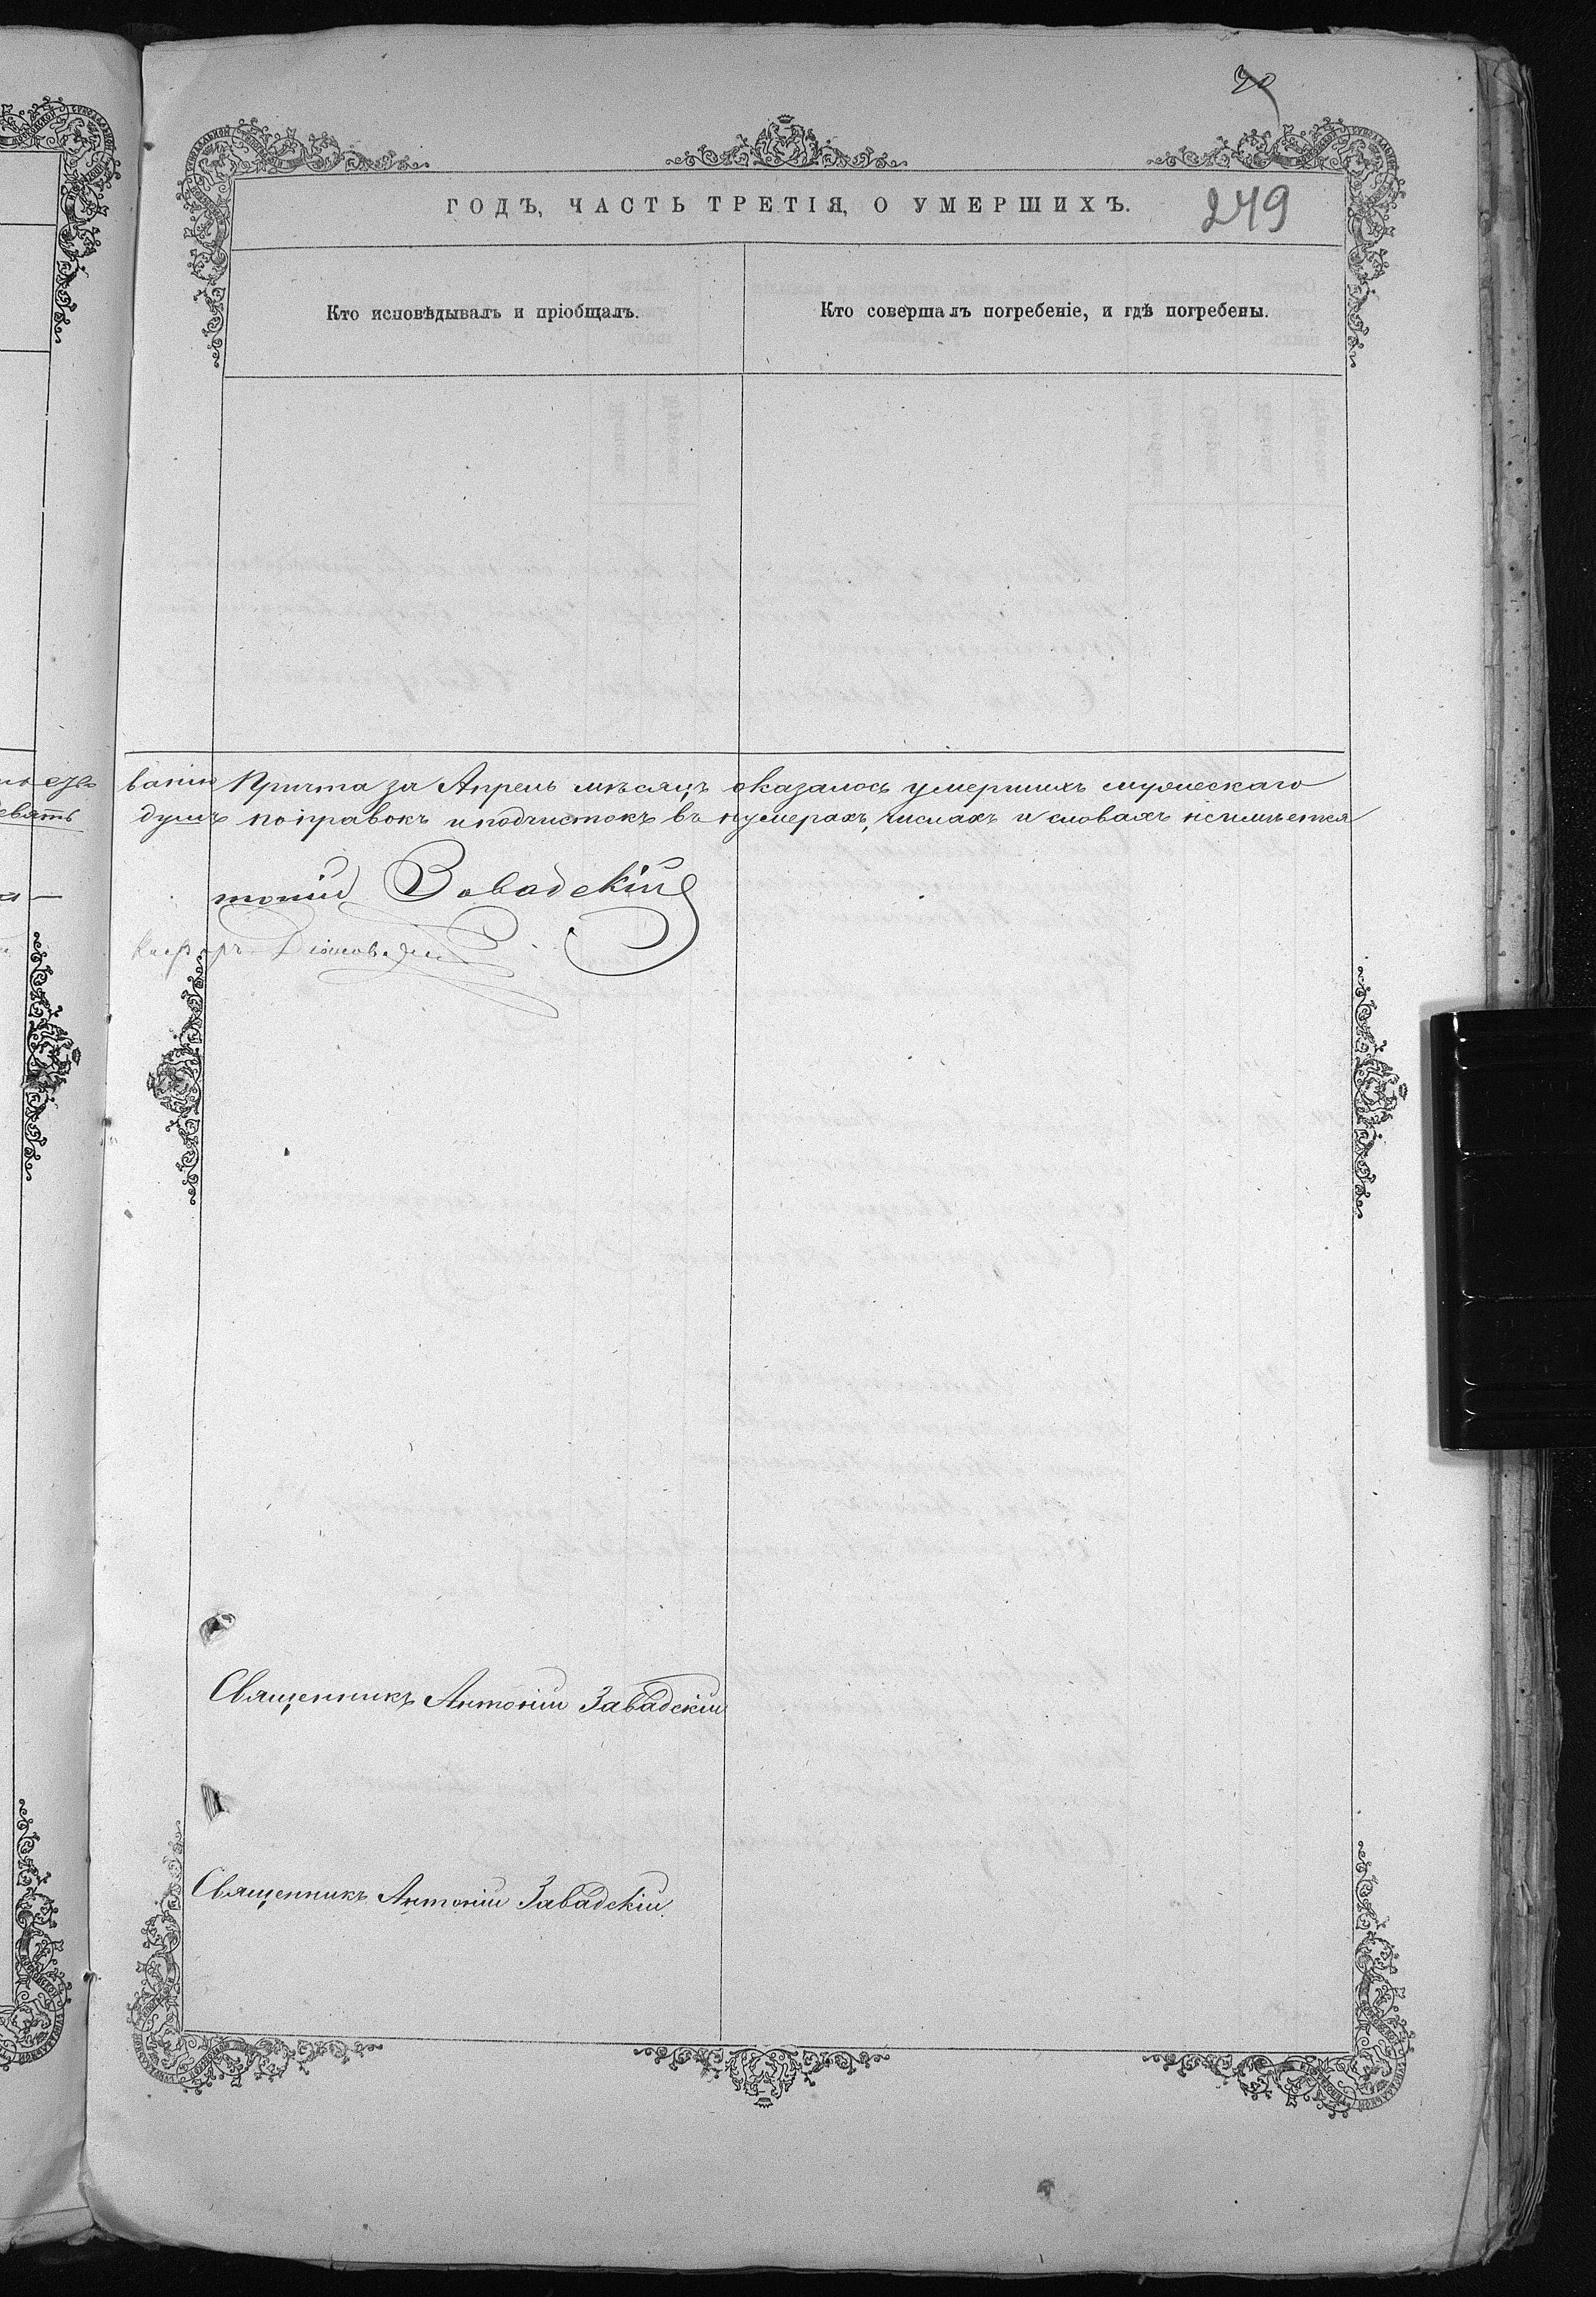 30
ГОДЪ, ЧАСТЬ ТРЕТІЯ, О УМЕРШИХЪ.
249
Кто исповѣдывалъ и пріобщалъ.
Кто совершалъ погребеніе, и гдѣ погребены.
ваніи Причта за Апрель мѣсяцъ оказалось умершихъ мужескаго
девять
душъ поправокъ и подчистокъ въ нумерахъ, числахъ и словахъ не имѣется
тоній Завадскій
Священникъ Антоній Завадскій
Священникъ Антоній Завадскій